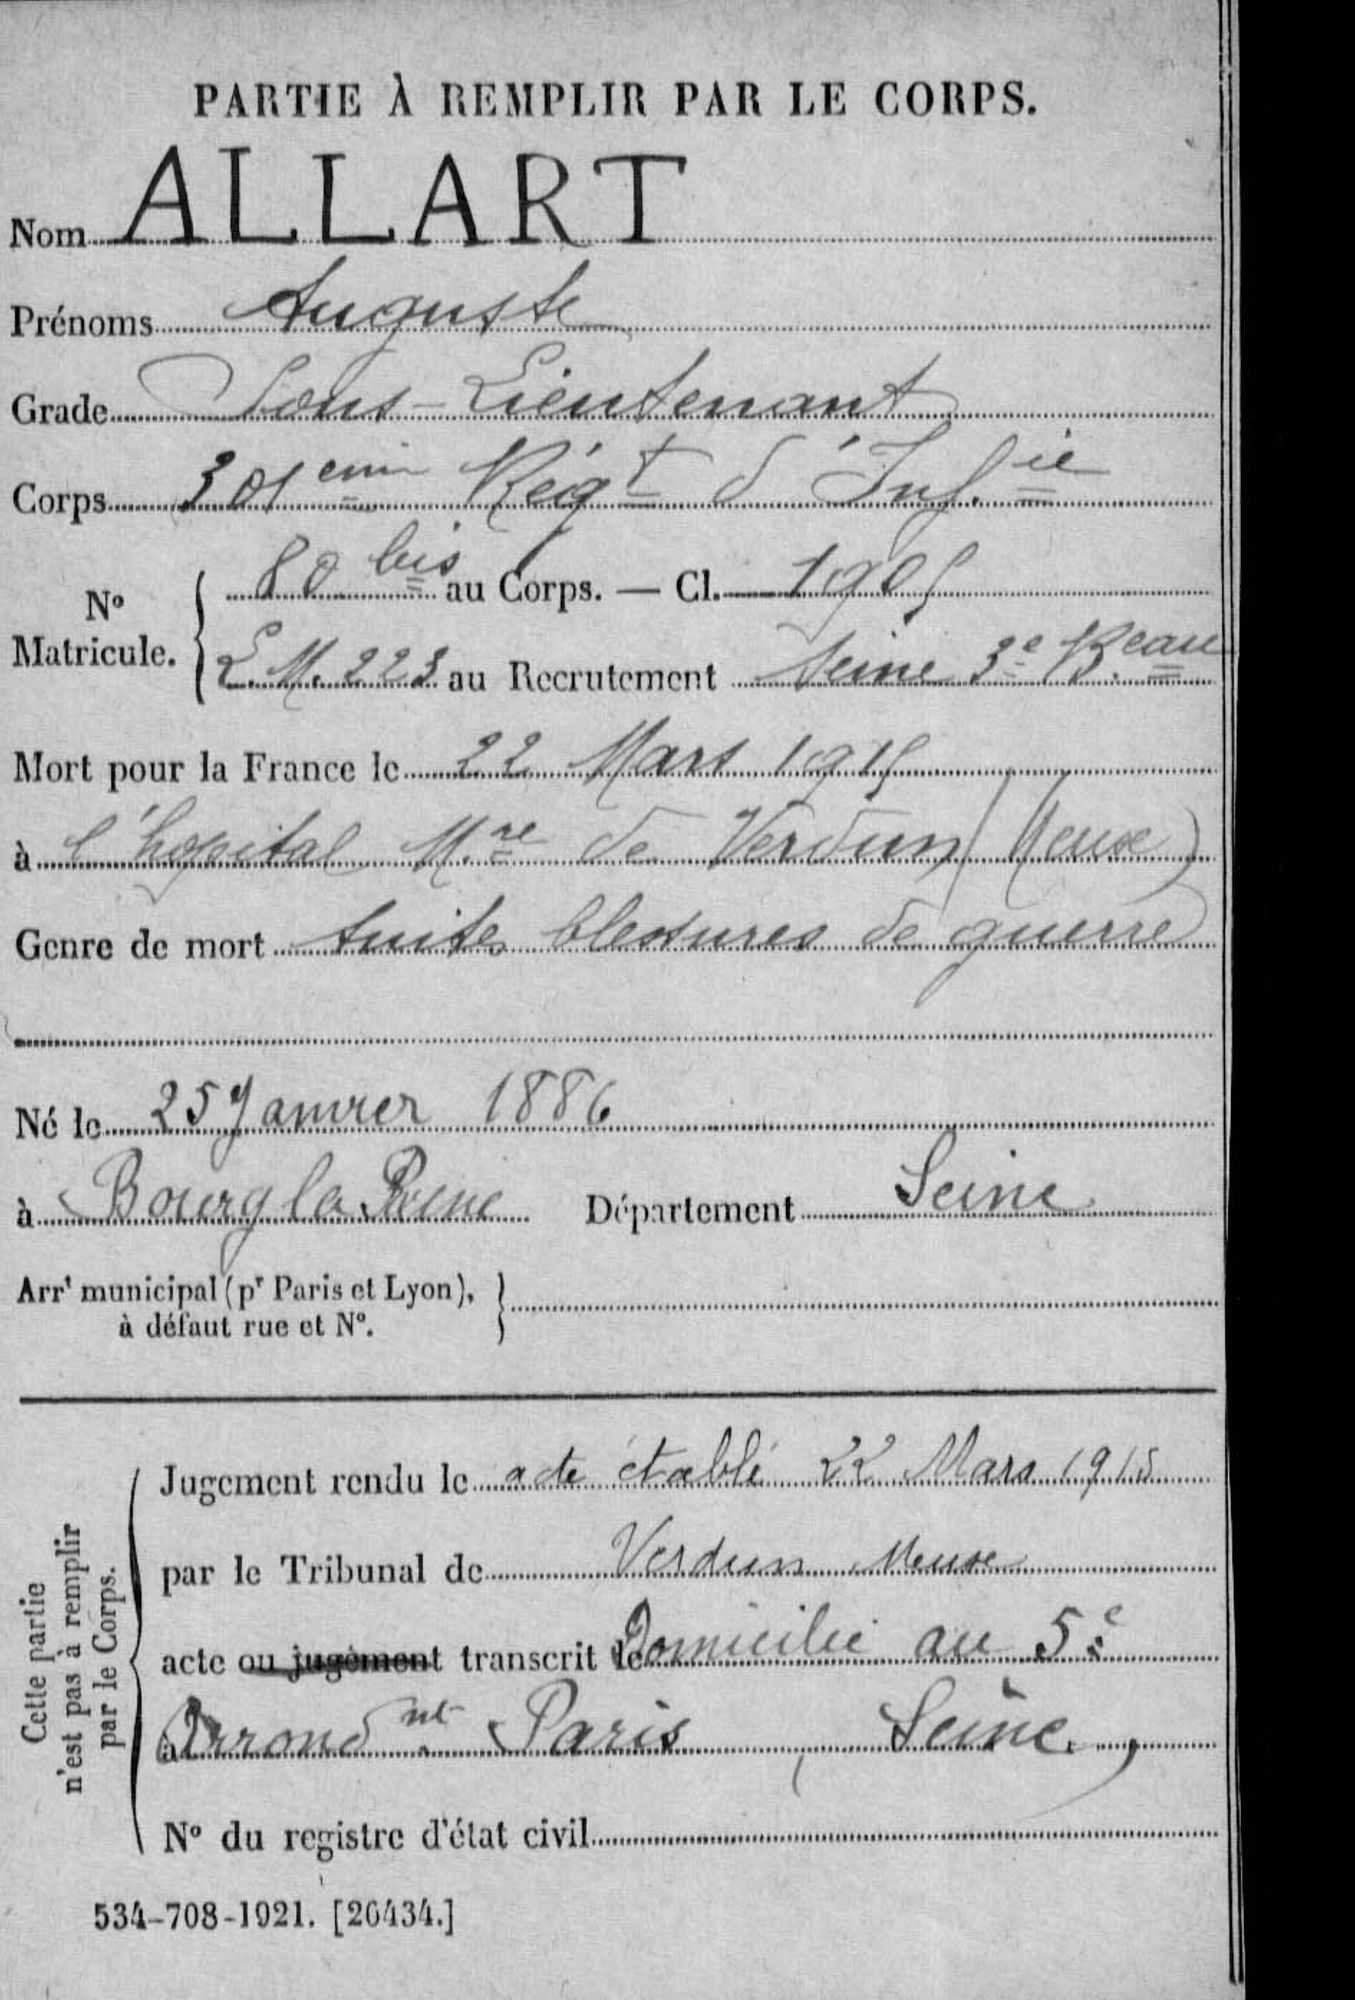 PARTIE À REMPLIR PAR LE CORPS.
Nom ALLART
Prénoms Auguste
Grade Sous-Lieutenant
Corps 301eme Régt d'Inf.ie
N° Matricule. { 80 bis au Corps. — Cl. 1905
L.M. 223 au Recrutement Seine 3e B.eau
Mort pour la France le 22 Mars 1915
à l'hopital M.re de Verdun (Meuse)
Genre de mort suites blessures de guerre
Né le 25 Janvier 1886
à Bourg la Reine Département Seine
Arrt municipal (pr Paris et Lyon),
à défaut rue et N°.
Cette partie
n'est pas à remplir
par le Corps.
Jugement rendu le acte établi 22 Mars 1915
par le Tribunal de Verdun Meuse
acte ou jugement transcrit le Domicilié au 5e
à Arrondnt Paris, Seine,
N° du registre d'état civil
534-708-1921. [26434.]